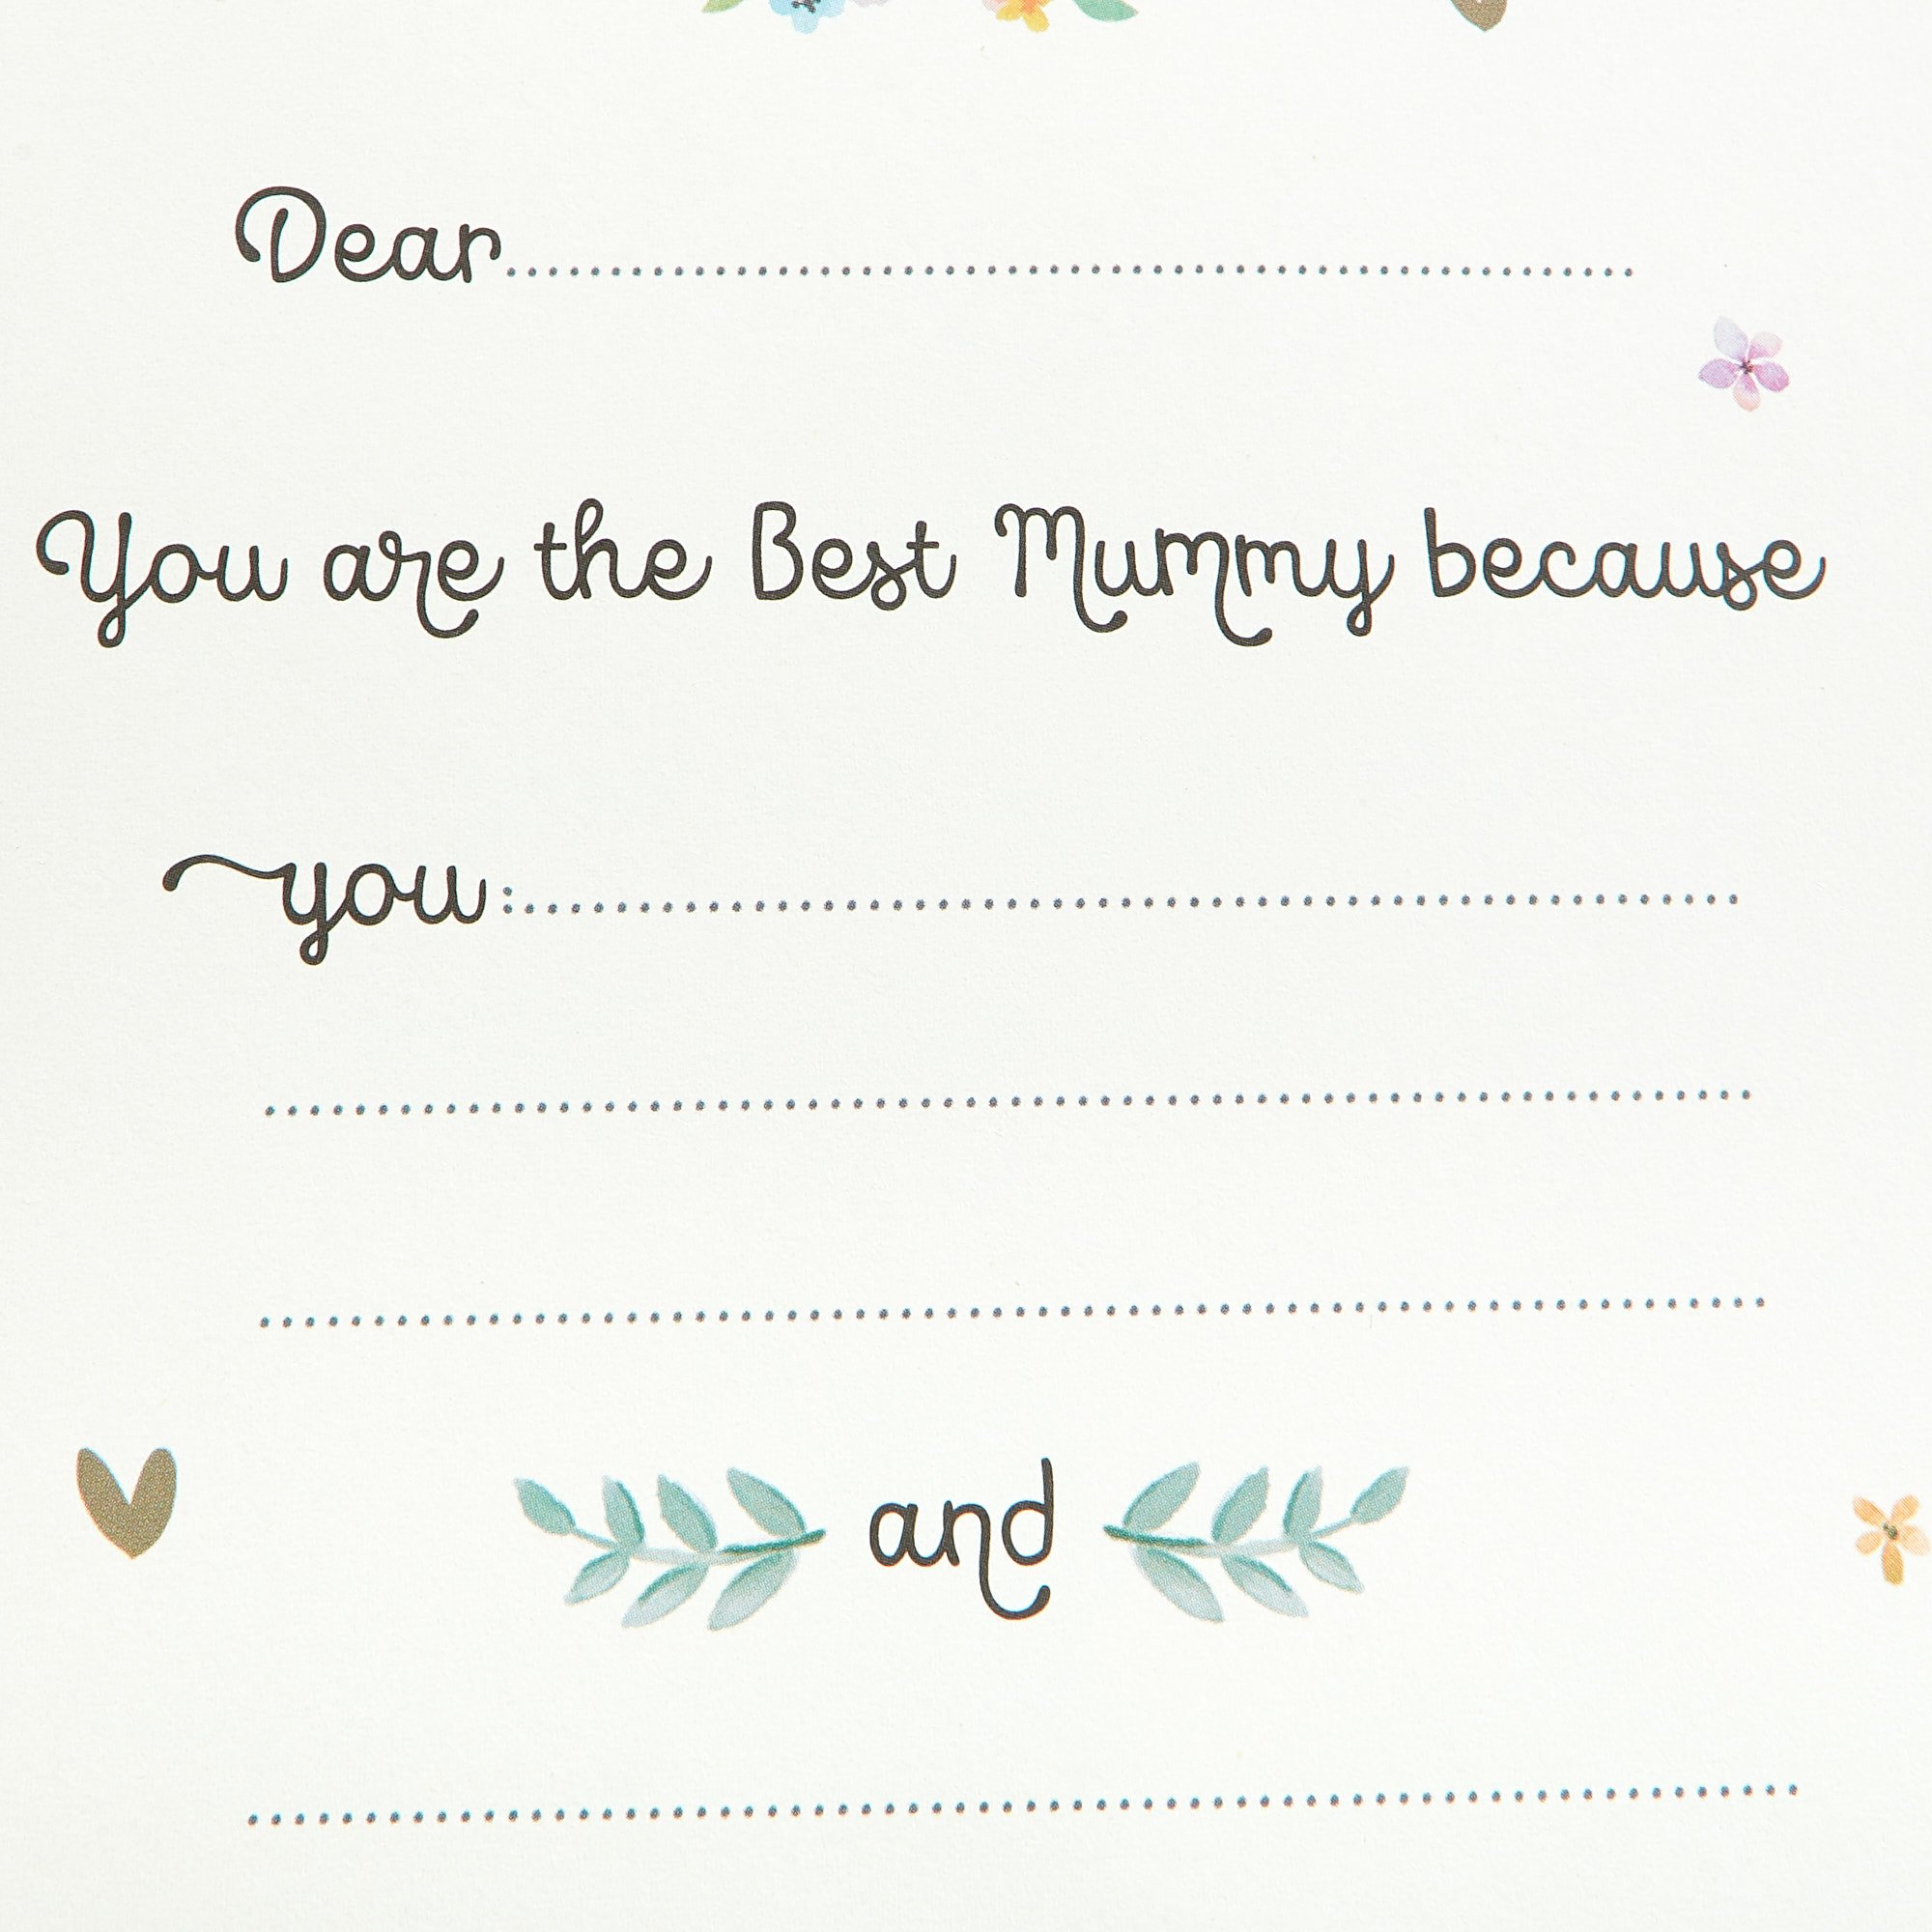 Dear..........................................................
You are the Best Mummy because
you:..........................................................
..........................................................
..........................................................
and
..........................................................